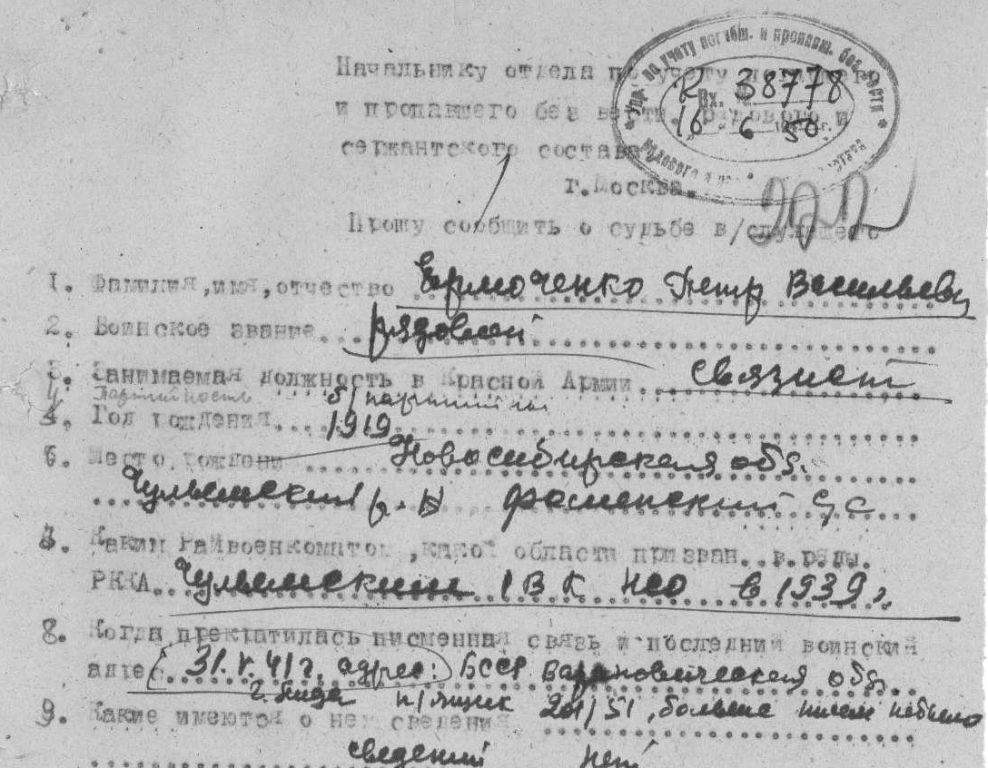 Упр. по учету погибш. и пропавш. без вести
рядового и
Вх. № 38778
16 6 50 г.
Начальнику отдела по учету
и пропавшего без вести, рядового и
сержантского состава
г.Москва.
202
Прошу сообщить о судьбе в/служащего
1. Фамилия,имя,отчество Ермоченко Петр Васильевич
2. Воинское звание рядовой
3. Занимаемая должность в Красной Армии связист
4. Партийность б/партийный
5. Год рождения 1919
6. Место рождени Новосибирская обл.
Чулымский р-н с/с
Каким Райвоенкоматом ,какой области призван в ряды
РККА Чулымским РВК НСО в 1939 г.
8. Когда прекратилась писменная связь и последний воинский
адрес (31.V.41г. адрес: БССР Барановическая обл.
г. Лида п/ящик 201/51, больше писем небыло
9. Какие имеются о нем сведения
сведений нет